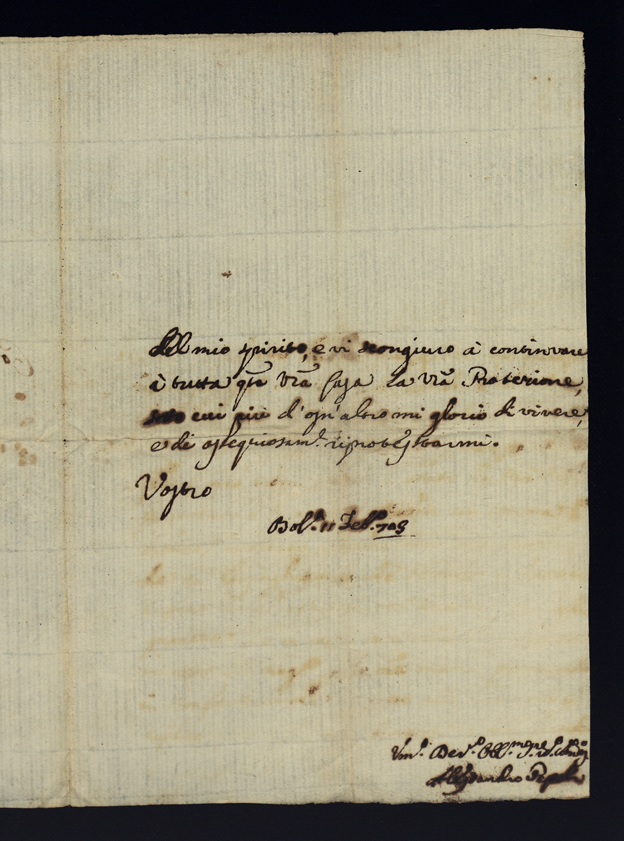 del mio spirito, e vi scongiuro à continovare
à tutta qta vrã Casa la vrã Protezione,
sotto cui più d'ogn'altro mi glorio di vivere,
e di ossequiosamte riprotestarmi.
Vostro
Bola. 11 Febo. 703
Vmo. Devo. Obbmo
Alessandro